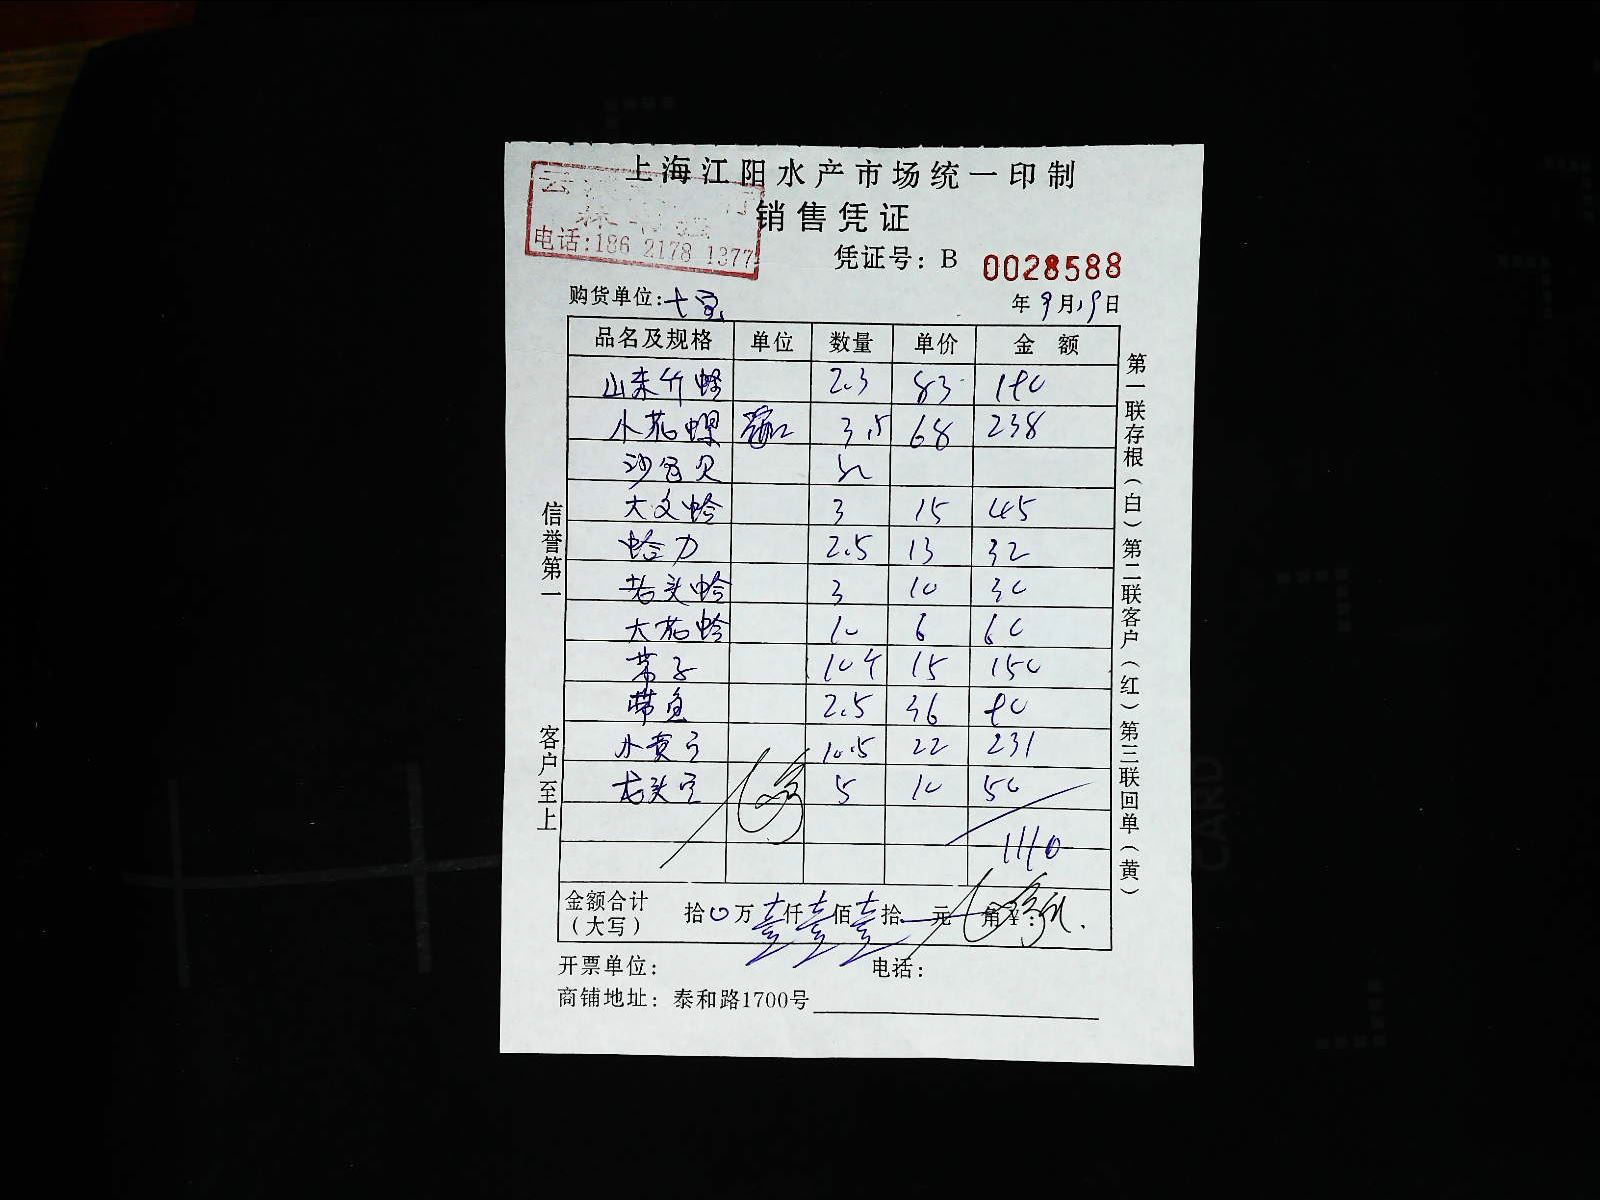 上海江阳水产市场统一印制
销售凭证
电话:186 2178 1377
凭证号: B 0028588
购货单位:七宝
年 9月19日
品名及规格 单位 数量 单价 金 额
山东竹蛏 2.3 83 190
小花螺 3.5 68 238
沙包贝
大文蛤 3 15 45
蛤力 2.5 13 32
老头蛤 3 10 30
大花蛤 10 6 60
带子 10个 15 150
带鱼 2.5 36 90
小黄鱼 10.5 22 231
龙头鱼 5 10 50
1110
金额合计
(大写) 拾0万壹仟壹佰壹拾 元 角¥:
开票单位: 电话:
商铺地址: 泰和路1700号
信誉第一
客户至上
第一联存根(白)第二联客户(红)第三联回单(黄)